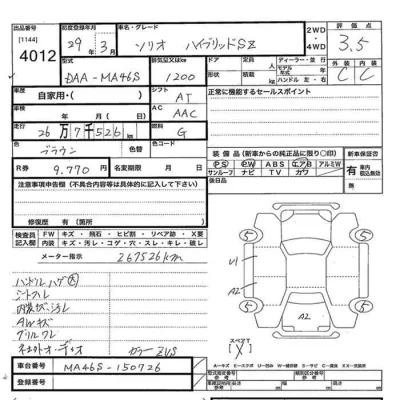 出品番号 [1144] 4012
初度登録年月 29年 3月
車名・グレード ソリオ ハイブリッドSZ
2WD ・ 4WD
評価点 3.5
型式 DAA-MA46S
排気量又はkw 1200
ドア 形状
定員 人
積載 kg
ディーラー・並行
モデル年式 年
ハンドル 左・右
外装 内装
C C
車歴 自家用・( )
シフト AT
正常に機能するセールスポイント
車検 年 月( 日)
AC AAC
走行 26万7千526k
燃料 G
色 ブラウン
色替
色コード
R券 9.770円
名変期限 月 日
装備品(新車からの純正品に限り○印)
PS PW ABS エアB アルミW
サンルーフ ナビ TV カワ
新車保証書
有 車内積込無効
後日品
注意事項申告欄(不具合内容等は具体的に記入して下さい)
修復歴 有(箇所 )
検査員記入欄
FW キズ・飛石・ヒビ割・リペア跡・X要
内装 キズ・汚レ・コゲ・穴・スレ・キレ・破レ
メーター指示 267526km
ハンドルハゲ大
シートスレ
内装キズ汚レ
AWキズ
グリルワレ
カラーZVS
車台番号 MA46S-150726
登録番号
5 5
U1
A2
A2
5 5
スペアT
[X]
A-キズ E-エクボ U-凹み W-補修跡 S-サビ C-腐食 XX-交換済